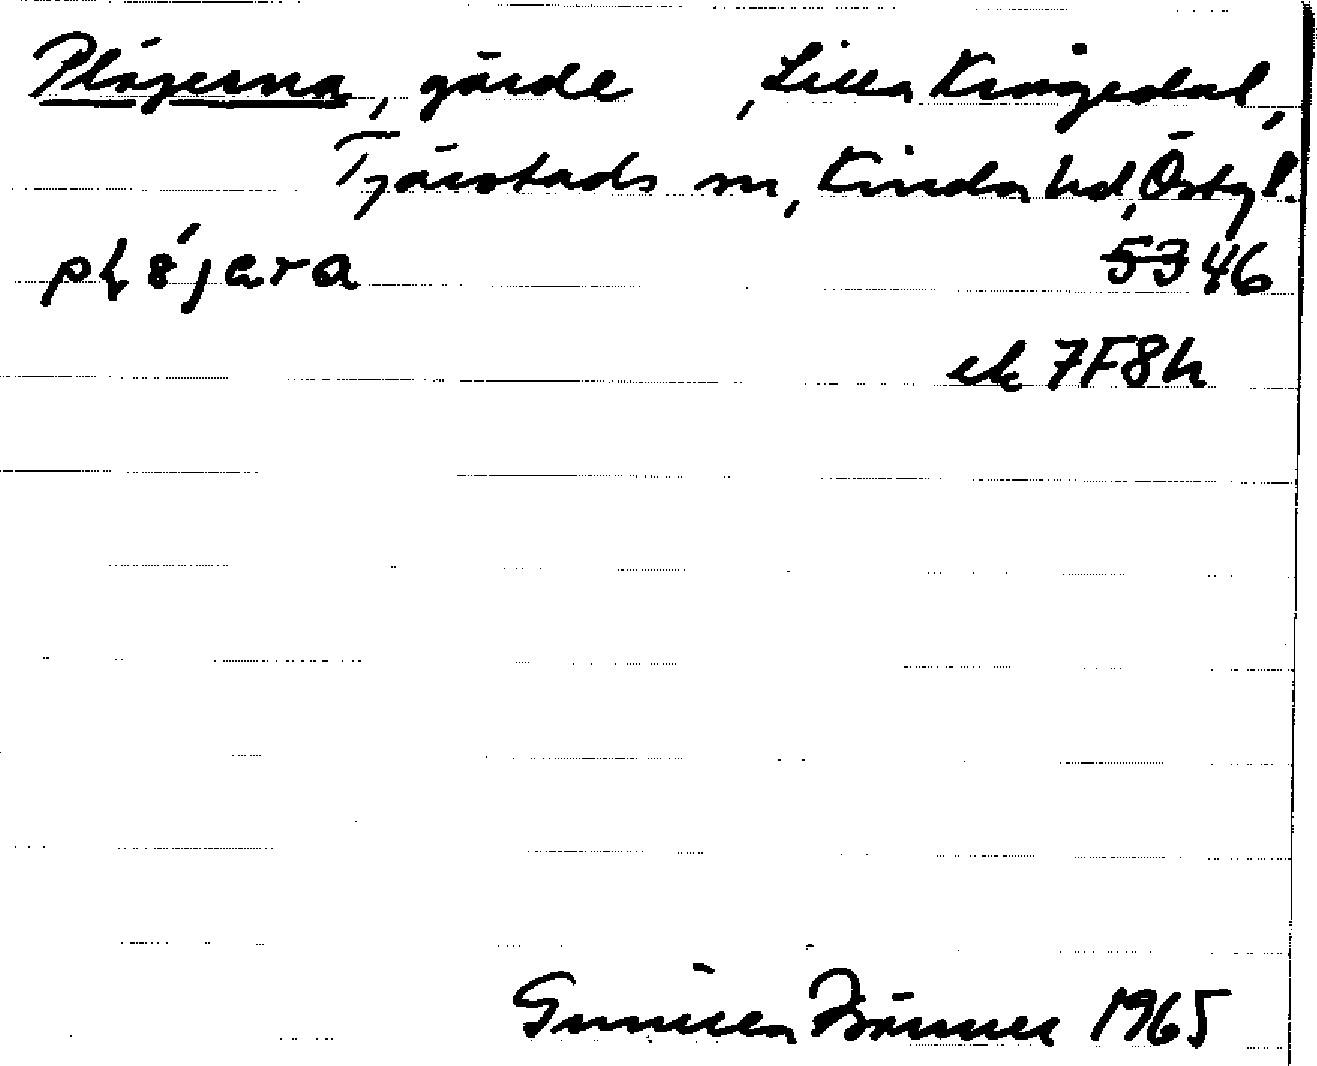 Plöjerna, gärde , Lilla Krågedal,
Tjärstads sn, Kinda hd, Östg l.
plöjara 53 46
ek 7F8h
Gunilla 1965